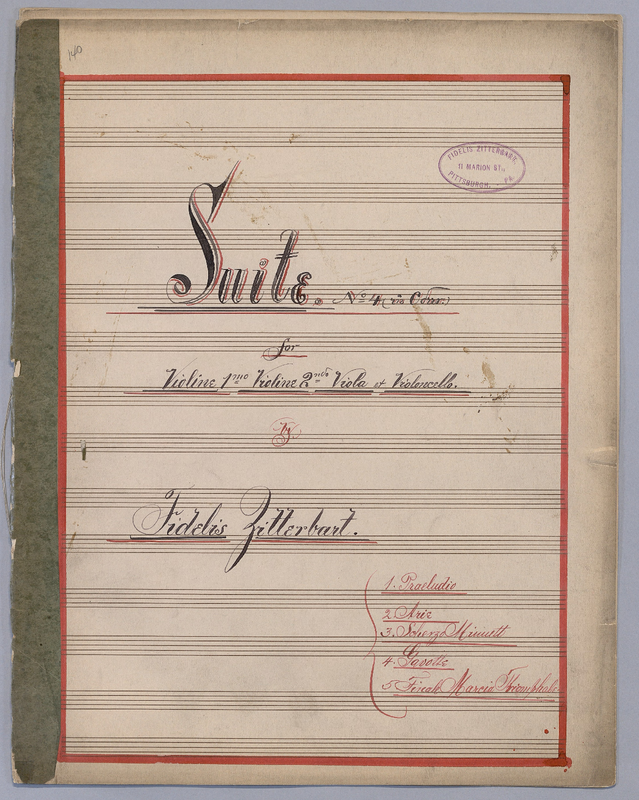 140
FIDELIS ZITTERBART.
11 MARION ST.,
PITTSBURGH, PA.
Suite. No 4 (in C dur.)
for
Violine 1mo Violine 2ndo Viola et Violoncello.
by.
Fidelis Zitterbart.
1. Praeludio
2. Arie
3. Scherzo Minuett
4. Gavotte
5 Finale Marcia Triomphale